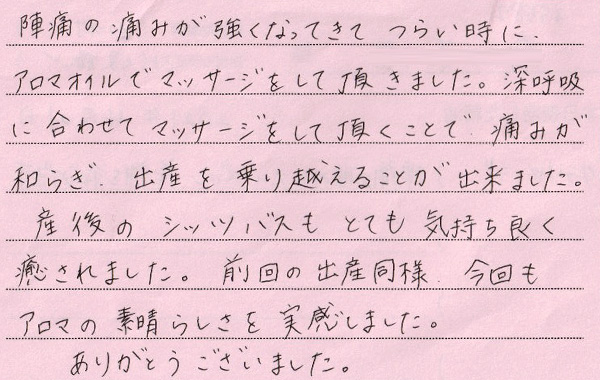 陣痛の痛みが強くなってきてつらい時に、
アロマオイルでマッサージをして頂きました。深呼吸
に合わせてマッサージをして頂くことで、痛みが
和らぎ、出産を乗り越えることが出来ました。
産後のシッツバスもとても気持ち良く
癒されました。前回の出産同様、今回も
アロマの素晴らしさを実感しました。
ありがとうございました。